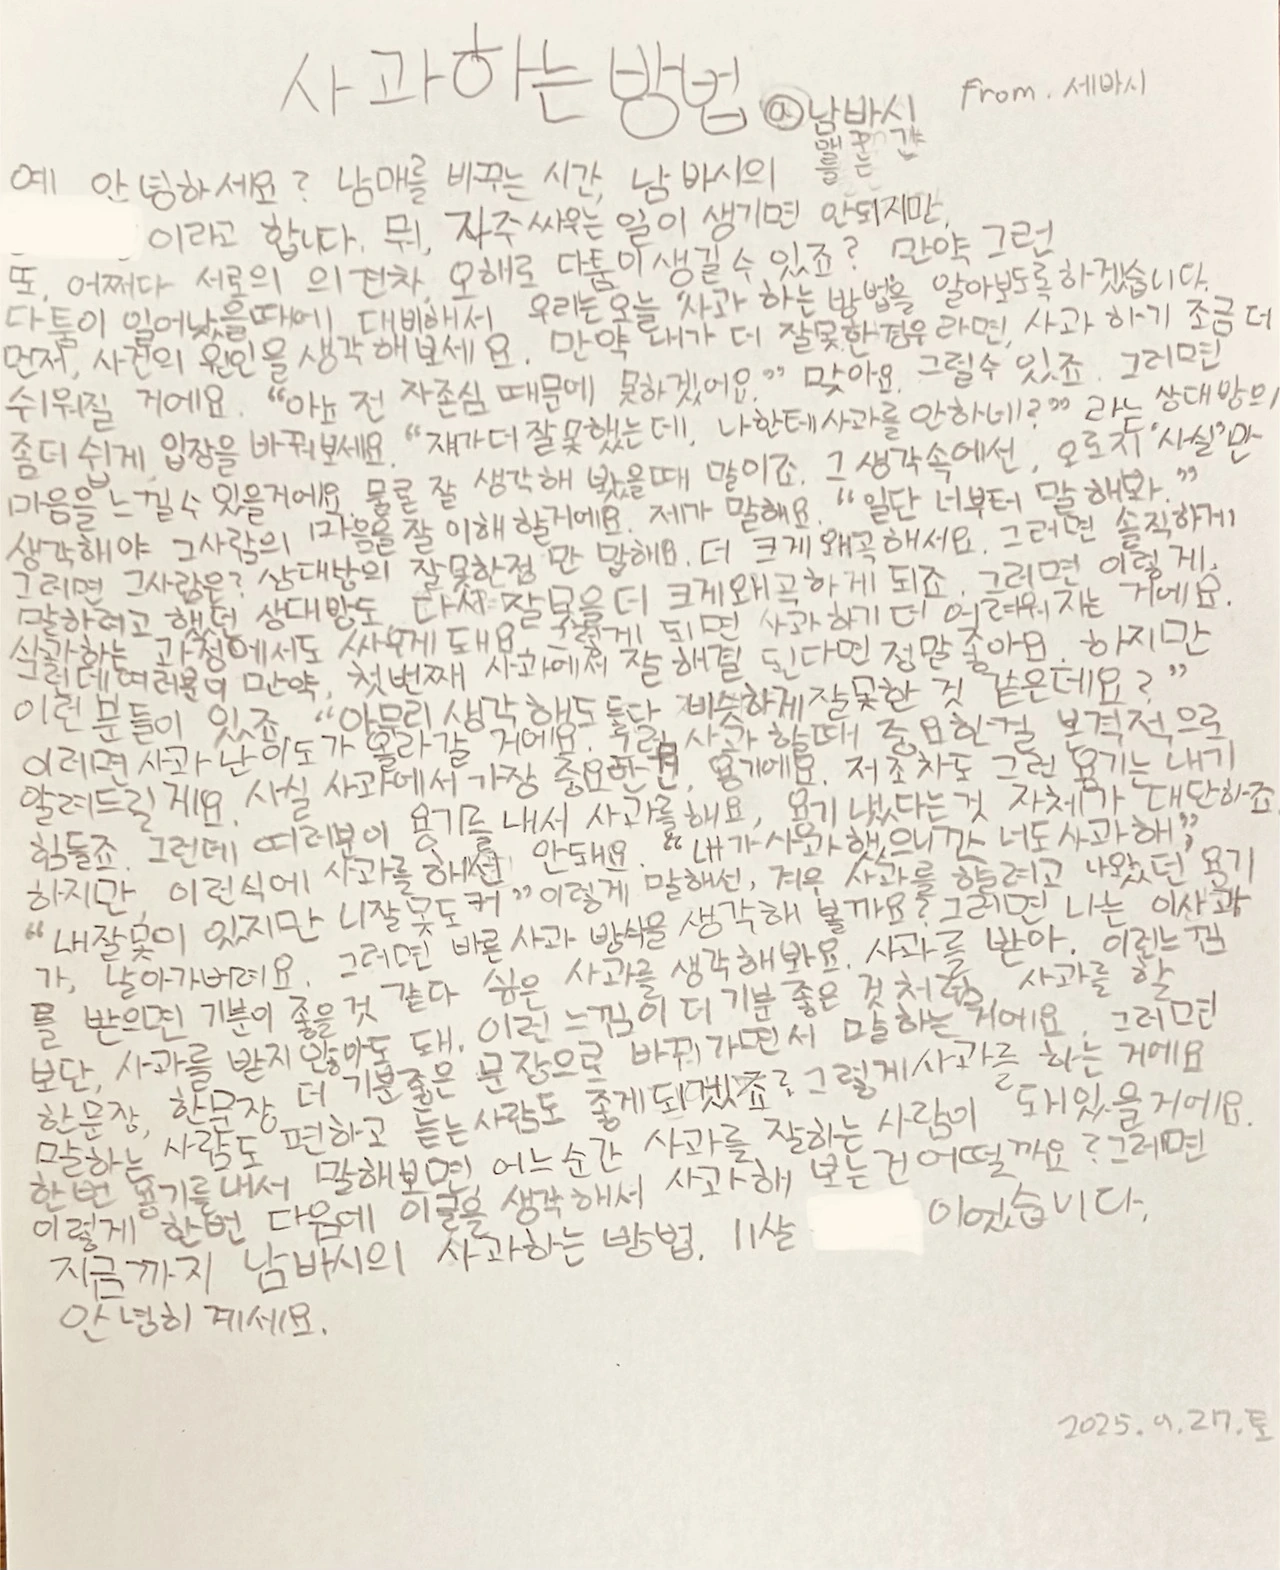 사과하는 방법 @남바시 from. 세바시
매를 꾸는 간
예 안녕하세요? 남매를 바꾸는 시간, 남바시의
이라고 합니다. 뭐, 자주 싸우는 일이 생기면 안되지만,
또, 어쩌다 서로의 의견차, 오해로 다툼이 생길 수 있죠? 만약 그런
다툼이 일어났을때에 대비해서 우리는 오늘 사과 하는 방법을 알아보도록 하겠습니다.
먼저, 사건의 원인을 생각해보세요. 만약 내가 더 잘못한 경우 라면, 사과 하기 조금 더
쉬워질 거에요. "아뇨 전 자존심 때문에 못하겠어요." 맞아요. 그럴수 있죠. 그러면
좀더 쉽게, 입장을 바꿔보세요. "쟤가 더 잘못했는데, 나한테 사과를 안하네?" 라는 상대방의
마음을 느낄수 있을거에요. 물론 잘 생각해 봤을때 말이죠. 그 생각속에선, 오로지 '사실'만
생각해야 그사람의 마음을 잘 이해 할거에요. 제가 말해요. "일단 너부터 말해봐."
그러면 그사람은? 상대방의 잘못한점 만 말해요. 더 크게 왜곡해서요. 그러면 솔직하게
말하려고 했던 상대방도, 다시 잘못을 더 크게 왜곡하게 되죠. 그러면 이렇게,
사과하는 과정에서도 싸우게 돼요. 그렇게 되면 사과하기 더 어려워 지는 거에요.
그런데 여러분이 만약, 첫번째 사과에서 잘 해결 된다면 정말좋아요. 하지만
이런 분들이 있죠. "아무리 생각 해도 둘다 비슷하게 잘못한 것 같은데요?"
이러면 사과 난이도가 올라갈 거에요. 사과 할때 중요한걸 본격적으로
알려드릴게요. 사실 사과에서 가장 중요한건, 용기에요. 저조차도 그런 용기는 내기
힘들죠. 그런데 여러분이 용기를 내서 사과를해요, 용기 냈다는것 자체가 대단하죠.
하지만 이런식에 사과를 해선 안돼요. "내가 사과했으니깐 너도 사과해",
"내잘못이 있지만 니잘못도 커" 이렇게 말해선, 겨우 사과를 할려고 나왔던 용기
가, 날아가버려요. 그러면 바른 사과 방식을 생각해 볼까요? 그러면 나는 이사과
를 받으면 기분이 좋을것 같다 싶은 사과를 생각해봐요. 사과를 받아. 이런느낌
보단, 사과를 받지 않아도 돼. 이런 느낌이 더 기분 좋은 것처럼, 사과를 할
한문장, 한문장 더 기분좋은 문장으로 바꿔가면서 말하는 거에요. 그러면
말하는 사람도 편하고 듣는사람도 좋게 되겠죠? 그렇게 사과를 하는 거에요
한번 용기를내서 말해보면 어느순간 사과를 잘하는 사람이 돼있을거에요.
이렇게 한번 다음에 이글을 생각해서 사과해 보는건 어떨까요? 그러면
지금까지 남바시의 사과하는 방법, 11살 이었습니다.
안녕히 계세요.
2025.9.27.토